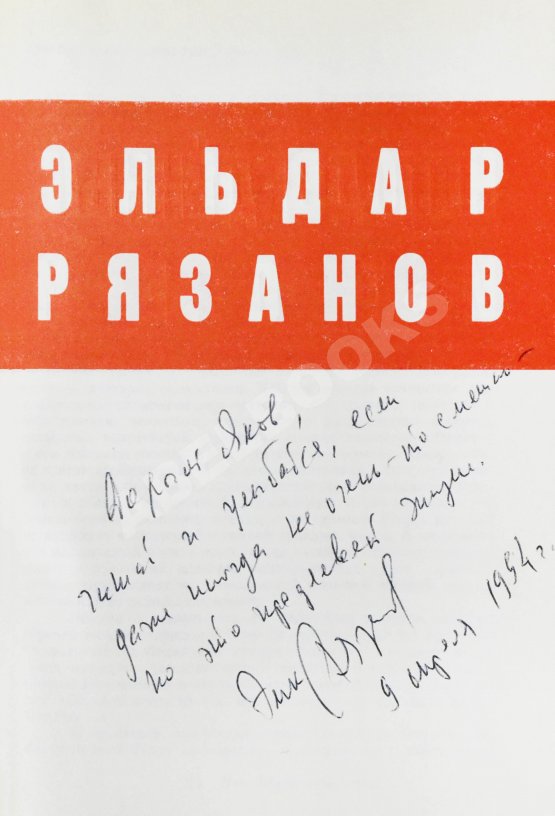 ЭЛЬДАР
РЯЗАНОВ
Дорогой Яков,
читай и улыбайся, если
даже иногда не очень-то смешно
но это продлевает жизнь.
Эльдар Рязанов
9 апреля 1994 г.
ABELBOOKS